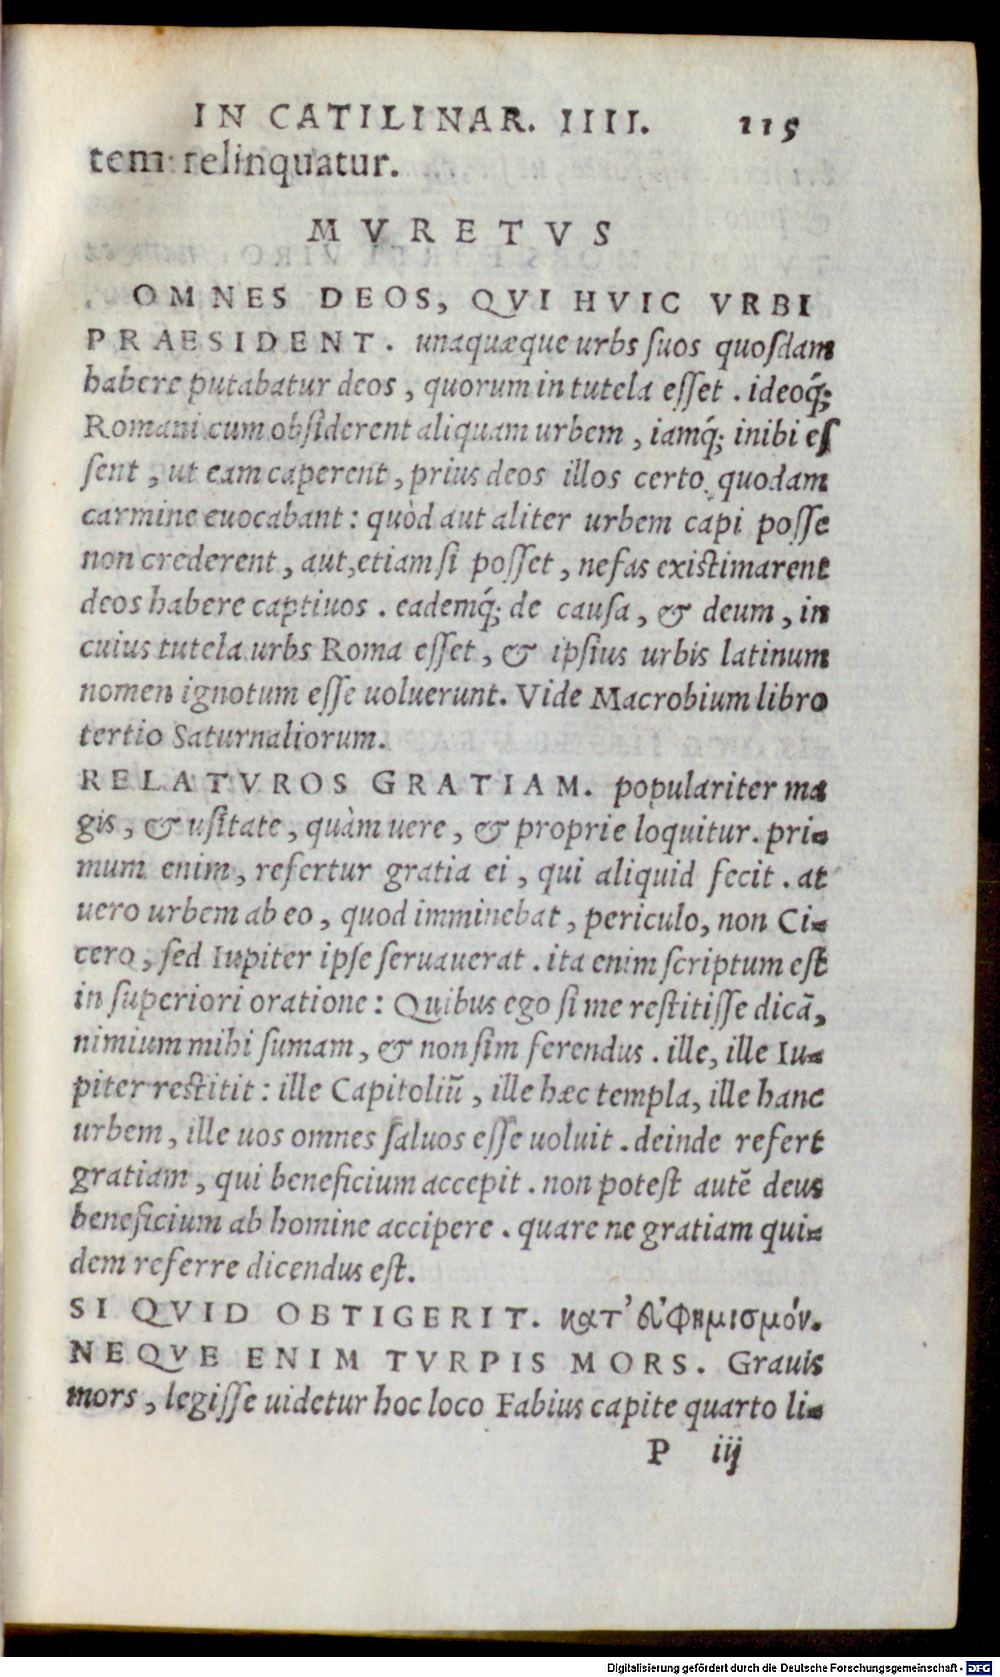 IN CATILINAR. IIII. 115
tem relinquatur.
MVRETVS
OMNES DEOS, QVI HVIC VRBI
PRAESIDENT. unaquæque urbs suos quosdam
habere putabatur deos, quorum in tutela esset. ideoq́;
Romani cum obsiderent aliquam urbem, iamq́; inibi es
sent, ut eam caperent, prius deos illos certo quodam
carmine euocabant: quòd aut aliter urbem capi posse
non crederent, aut, etiam si posset, nefas existimarent
deos habere captiuos. eademq́; de causa, & deum, in
cuius tutela urbs Roma esset, & ipsius urbis latinum
nomen ignotum esse uoluerunt. Vide Macrobium libro
tertio Saturnaliorum.
RELATVROS GRATIAM. populariter ma
gis, & usitate, quàm uere, & proprie loquitur. pri-
mum enim, refertur gratia ei, qui aliquid fecit. at
uero urbem ab eo, quod imminebat, periculo, non Ci-
cero, sed Iupiter ipse seruauerat. ita enim scriptum est
in superiori oratione: Quibus ego si me restitisse dicā,
nimium mihi sumam, & non sim ferendus. ille, ille Iu-
piter restitit: ille Capitoliū, ille hæc templa, ille hanc
urbem, ille uos omnes saluos esse uoluit. deinde refert
gratiam, qui beneficium accepit. non potest autē deus
beneficium ab homine accipere. quare ne gratiam qui-
dem referre dicendus est.
SI QVID OBTIGERIT. κατ' εὐφημισμόν.
NEQVE ENIM TVRPIS MORS. Grauis
mors, legisse uidetur hoc loco Fabius capite quarto li-
P iij
Digitalisierung gefördert durch die Deutsche Forschungsgemeinschaft - DFG